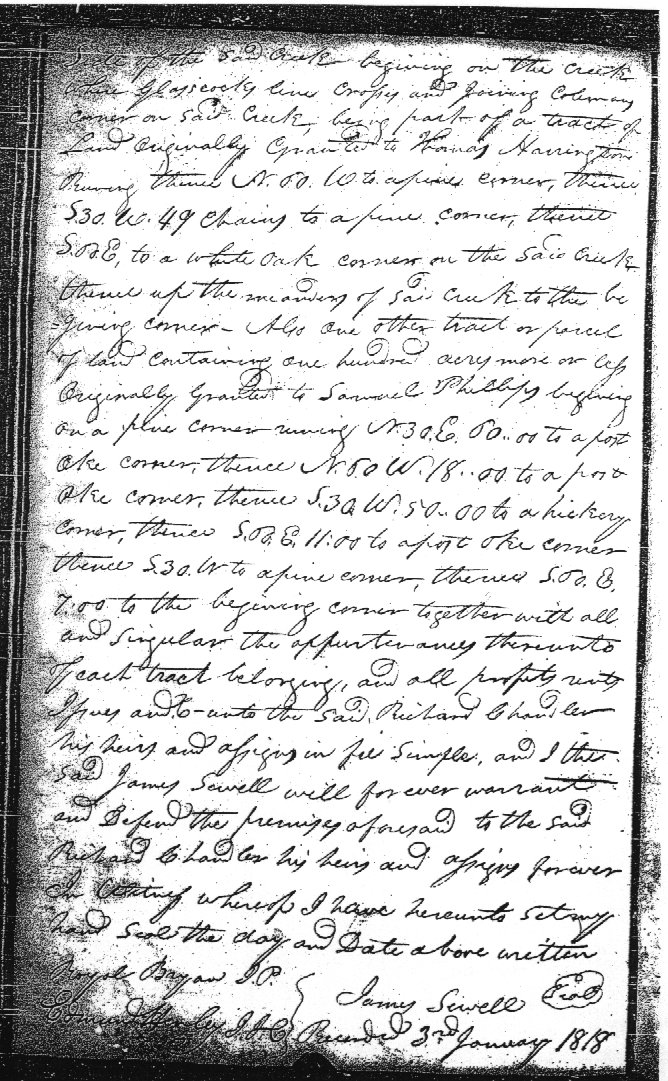 Side of the Said Creek begining on the Creek
where Glasscocks line Crosses and Joining Colemans
corner on Said Creek, being part of a tract of
Land Originally Granted to Thomas Harrington
Runing thence N. 60. W to a pine corner, thence
S.30. W. 49 Chains to a pine corner, thence
S.60.E, to a white Oak corner on the Said Creek
thence up the meanders of Said Creek to the be
=gining corner - Also one other tract or parcel
of land containing one hundred acres more or less
Originally Granted to Samuel Phillips begining
on a pine corner runing N.30.E. 60..00 to a post
oke corner, thence N.60 W. 18..00 to a post
oke corner, thence S.30 W. 50..00 to a hickery
corner, thence S.60.E. 11.00 to a post oke corner
thence S.30.W to a pine corner, thence S.60.E.
7.00 to the begining corner together with all
and Singular the appurtenances thereunto
of each tract belonging, and all profits rents
Issues and C- unto the Said Richard Chandler
his heirs and assigns in fee Simple, and I the
Said James Sewell will forever warrant
and Defend the premises aforesaid to the Said
Richard Chandler his heirs and assigns forever
In Witness whereof I have hereunto Set my
hand Seal the day and Date above written
Bryan J.P.
James Sewell Seal
J.I.C. Recorded 3rd January 1818